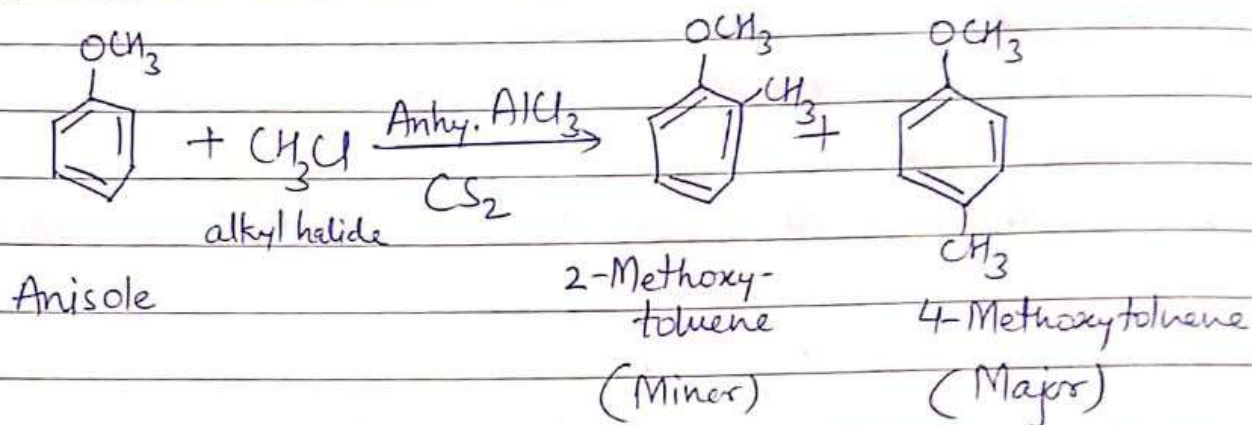 OCH3 OCH3 OCH3
+ CH3Cl Anhy. AlCl3 CH3 +
CS2
alkyl halide
CH3
Anisole 2-Methoxy-
toluene 4-Methoxytoluene
(Minor) (Major)